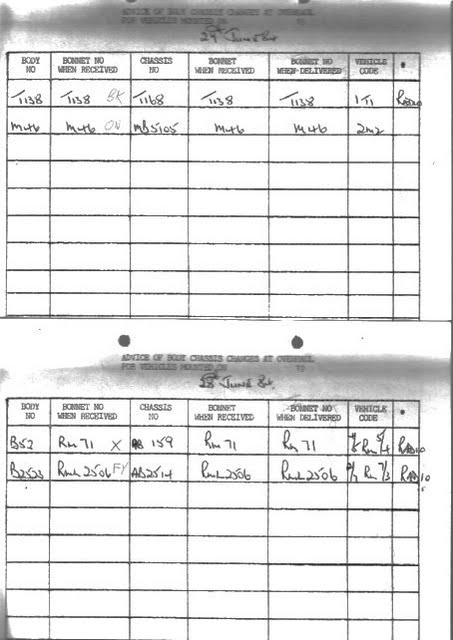 ADVICE OF BODY CHASSIS CHANGES AT OVERHAUL
FOR VEHICLES MOUNTED ON TO
29th June 84
BODY NO BONNET NO WHEN RECEIVED CHASSIS NO BONNET WHEN RECEIVED BONNET NO WHEN DELIVERED VEHICLE CODE *
T1138 T1138 BK T1168 T1138 T1138 1T1
M46 M46 ON MB5105 M46 M46 2M2
ADVICE OF BODY CHASSIS CHANGES AT OVERHAUL
FOR VEHICLES MOUNTED ON TO
June 84
BODY NO BONNET NO WHEN RECEIVED CHASSIS NO BONNET WHEN RECEIVED BONNET NO WHEN DELIVERED VEHICLE CODE *
B52 RM 71 X AB 159 RM 71 RM 71 RM 5/4
B2523 RML 2506 FY AB2514 RML 2506 RML 2506 RM 7/3